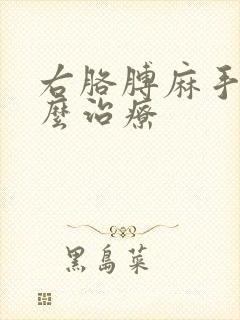 右胳膊麻手
麼治療
黑島菜